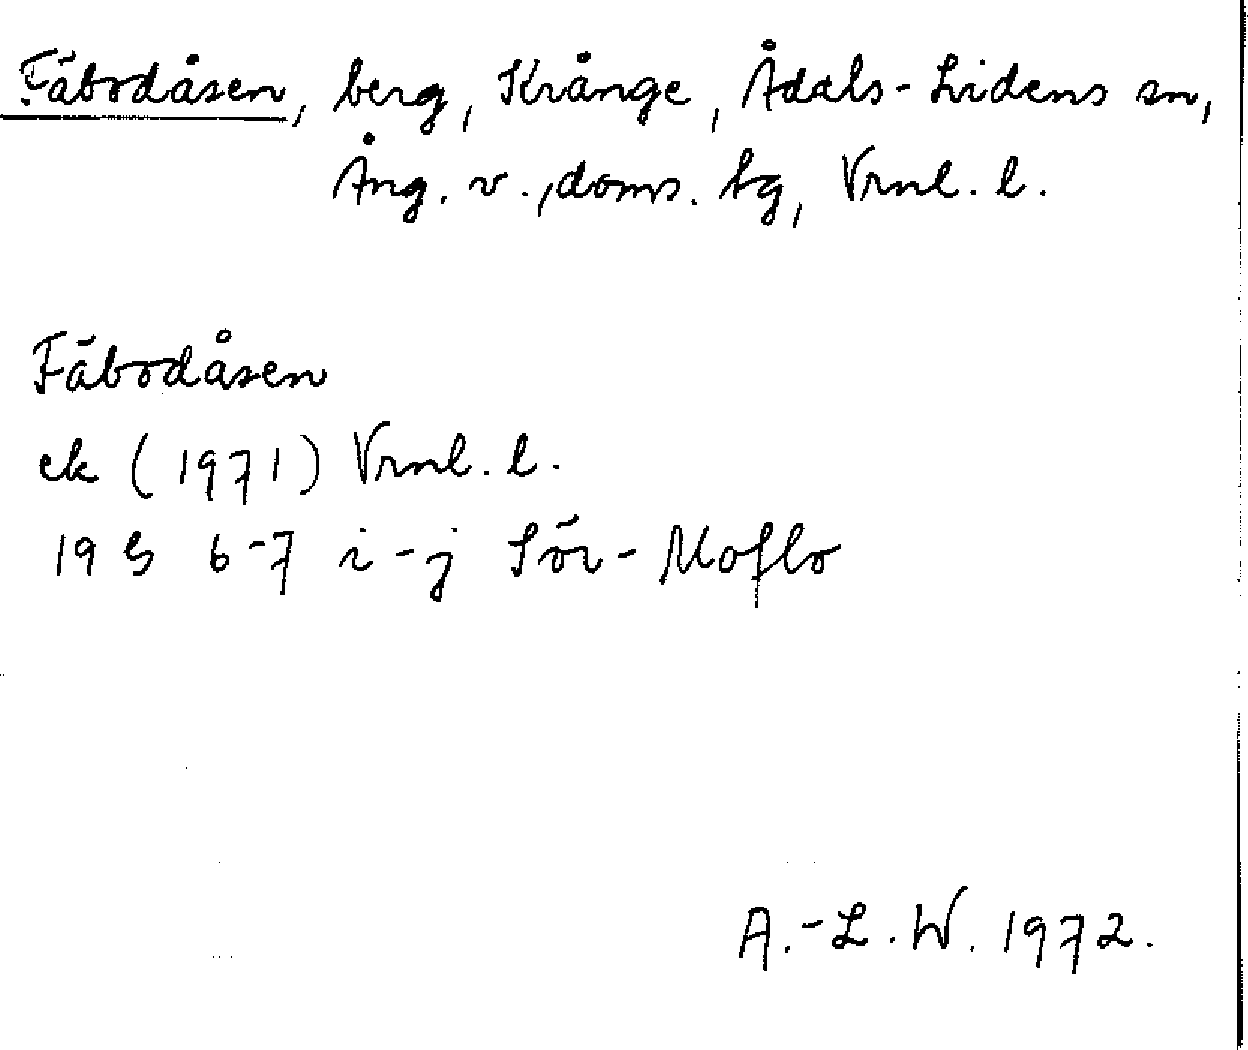 Fäbodåsen, berg, Krånge, Ådals-Lidens sn,
Ång. v., doms. tg, Vrnl. l.
Fäbodåsen
ek (1971) Vrnl. l.
19 G 6-7 i-j Sör-Moflo
A.-L.W. 1972.